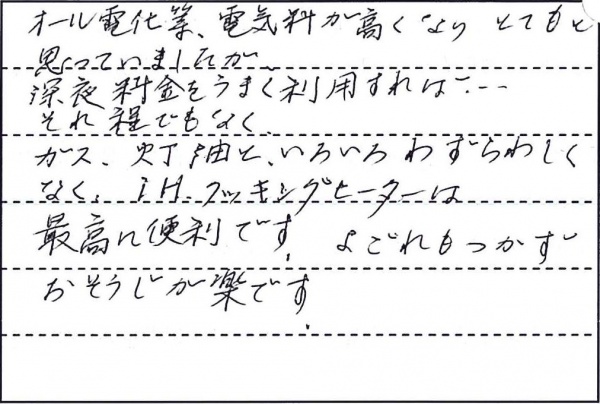 オール電化等、電気料が高くなり とてもと
思っていましたが、
深夜料金をうまく利用すれば…
それ程でもなく、
ガス、灯油と、いろいろわずらわしく
なく、IH.クッキングヒーターは
最高に便利です。よごれもつかず
おそうじが楽です.